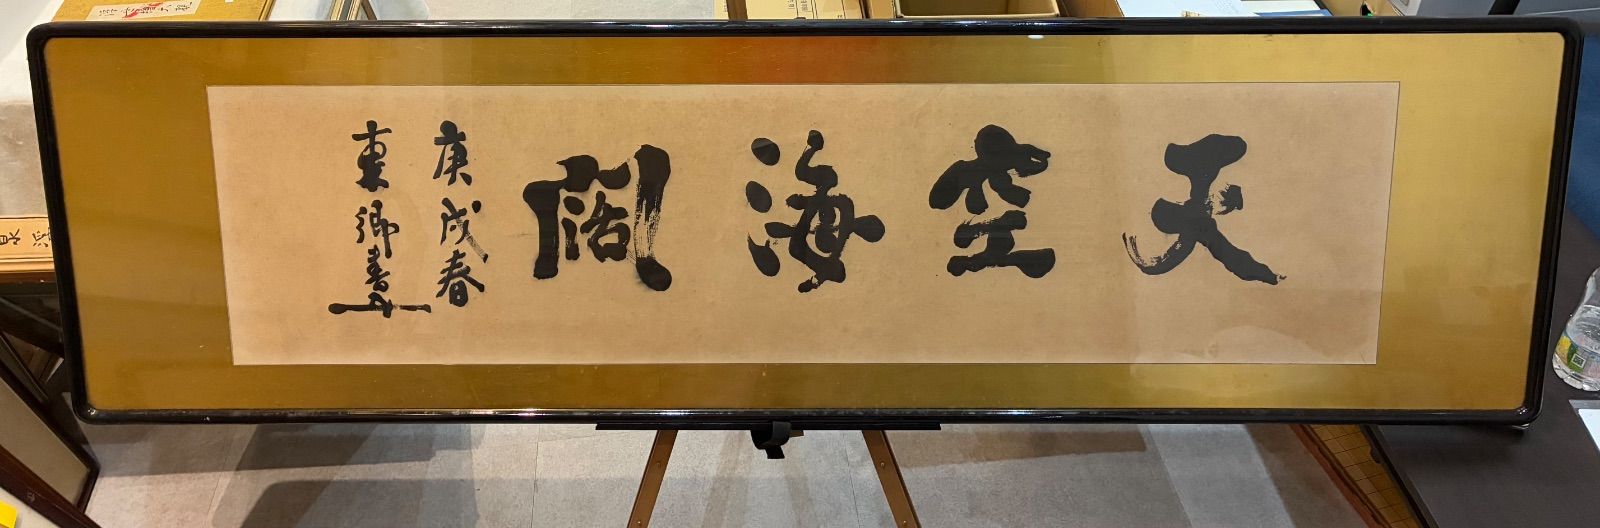 天空海闊
庚戌春
東郷書